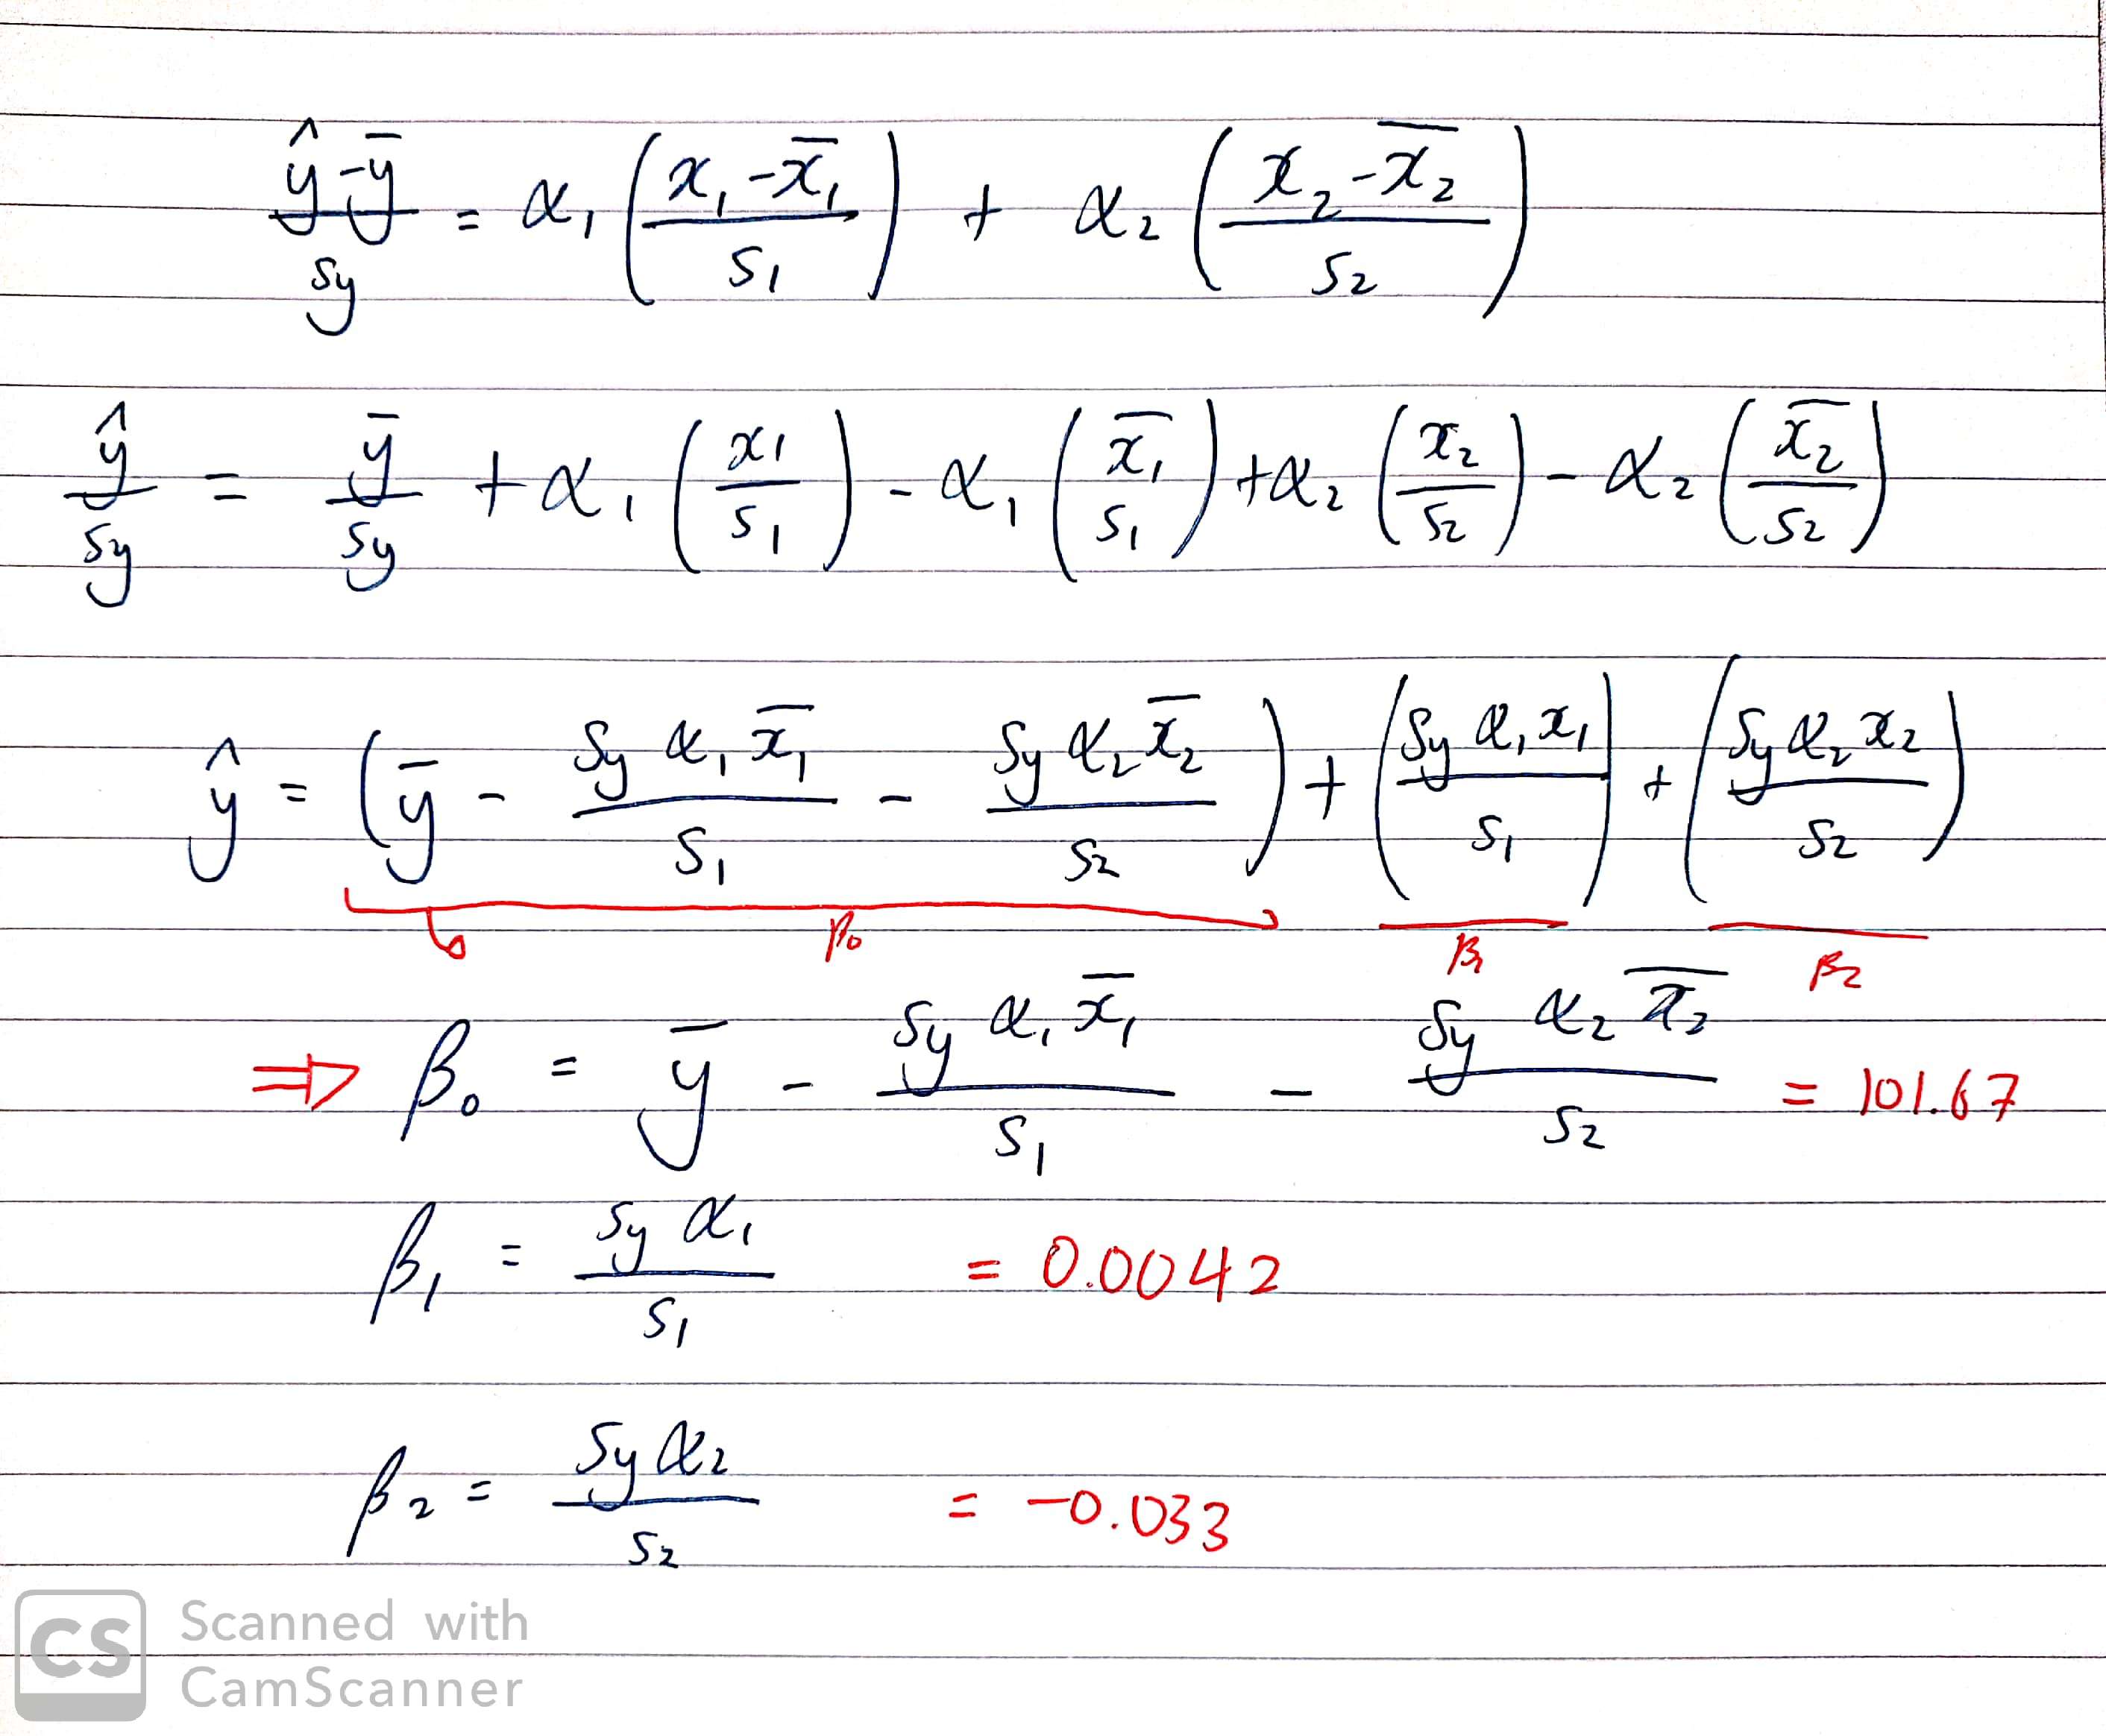 (ŷ - ȳ)/sy = α₁ ((x₁ - x̄₁)/s₁) + α₂ ((x₂ - x̄₂)/s₂)
ŷ/sy = ȳ/sy + α₁ (x₁/s₁) - α₁ (x̄₁/s₁) + α₂ (x₂/s₂) - α₂ (x̄₂/s₂)
ŷ = (ȳ - sy α₁ x̄₁/s₁ - sy α₂ x̄₂/s₂) + (sy α₁ x₁/s₁) + (sy α₂ x₂/s₂)
β₀ β₁ β₂
⇒ β₀ = ȳ - sy α₁ x̄₁/s₁ - sy α₂ x̄₂/s₂ = 101.67
β₁ = sy α₁/s₁ = 0.0042
β₂ = sy α₂/s₂ = -0.033
CS Scanned with
CamScanner